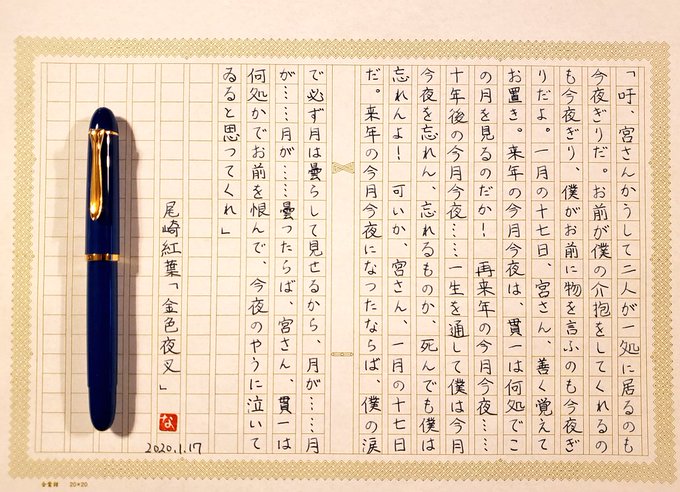 「吁、宮さんかうして二人が一処に居るのも
今夜ぎりだ。お前が僕の介抱をしてくれるの
も今夜ぎり、僕がお前に物を言ふのも今夜ぎ
りだよ。一月の十七日、宮さん、善く覚えて
お置き。来年の今月今夜は、貫一は何処でこ
の月を見るのだか！ 再来年の今月今夜……
十年後の今月今夜……一生を通して僕は今月
今夜を忘れん、忘れるものか、死んでも僕は
忘れんよ！ 可いか、宮さん、一月の十七日
だ。来年の今月今夜になつたならば、僕の涙
で必ず月は曇らして見せるから、月が……月
が……月が……曇つたらば、宮さん、貫一は
何処かでお前を恨んで、今夜のやうに泣いて
ゐると思つてくれ」
尾崎紅葉「金色夜叉」
な
2020.1.17
20×20